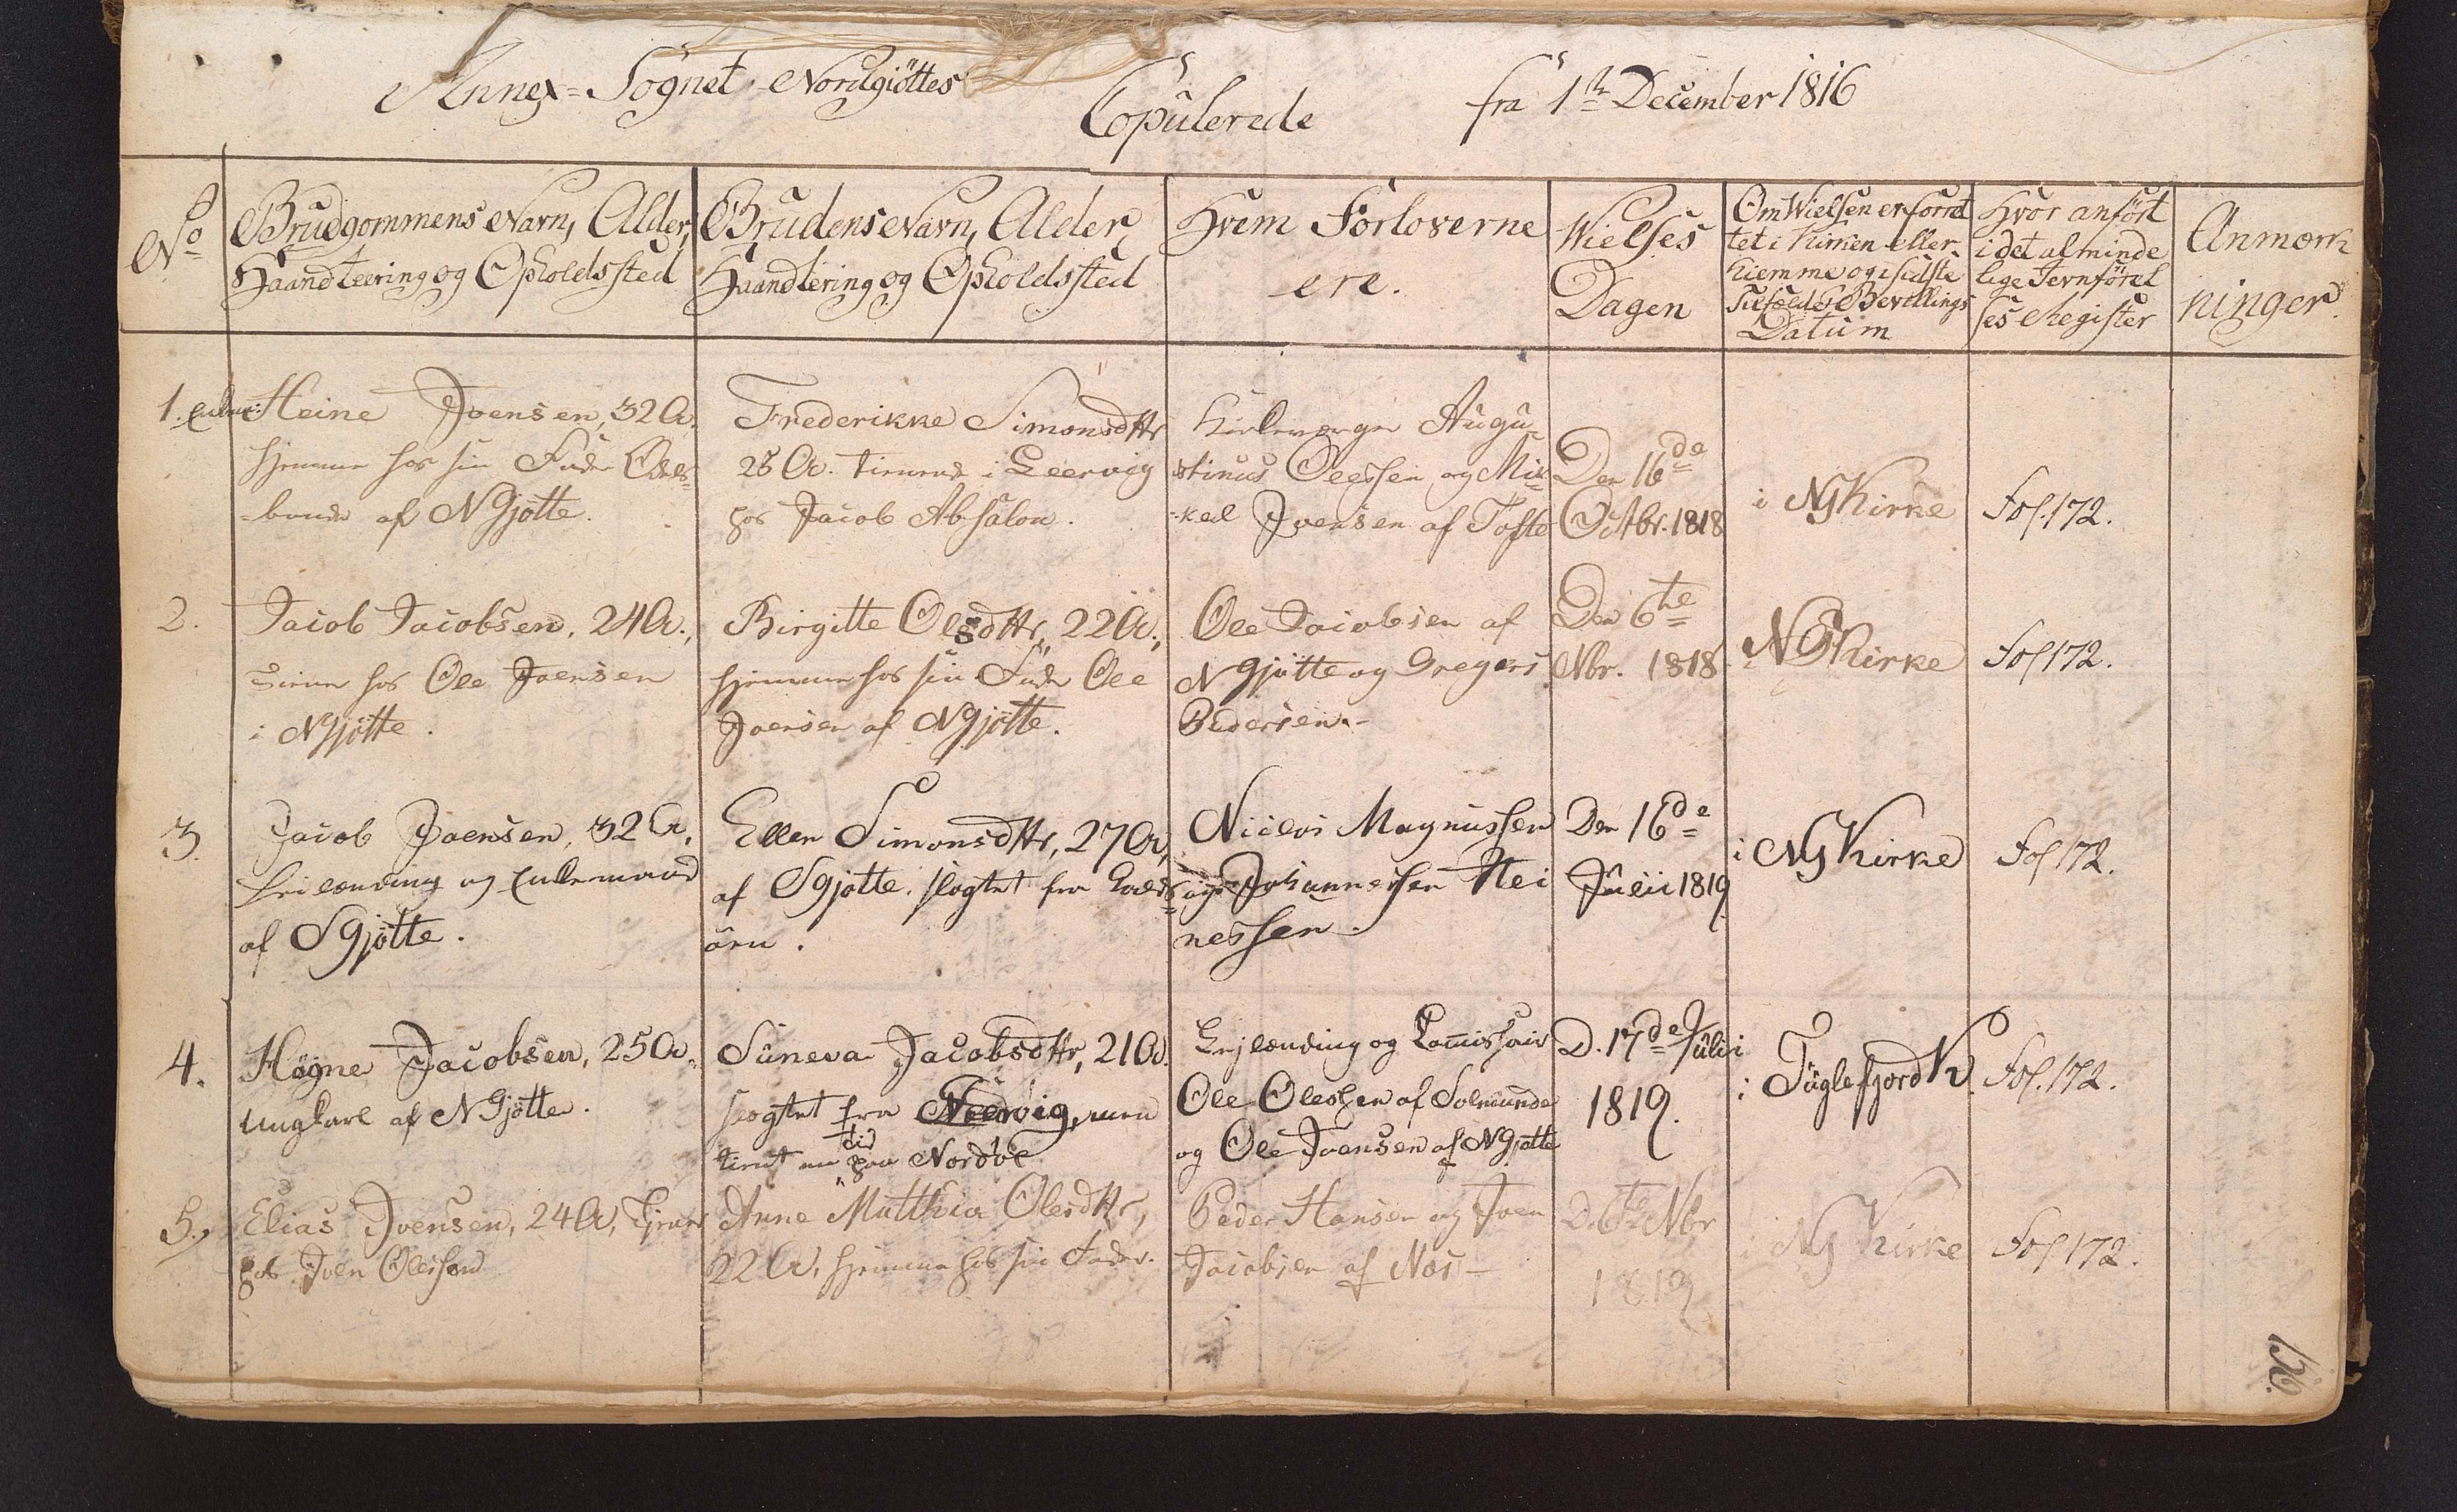 Annex-Sognet Nordgiöttes
Copulerede
fra 1ste December 1816
No
Brudgommens Navn, Alder,
Haandteering og Opholdssted
Brudens Navn, Alder,
Haandtering og Opholdssted
Hvem Forloverne
ere.
Wielses
Dagen
Om Wielsen er forret
tet i Kirken eller
hiemme og i sidste
Tilfælde Bevillings
Datum
Hvor anfört
i det alminde
lige Jevnförel
ses Register
Anmærk
ninger.
1. Enkem: Heine Joensen, 32 A.
hjemme hos sin Fader Odels-
-bonde af N Gjötte.
Frederikke Simonsdttr
28 A. tienende i Leervig
hos Jacob Absalon.
Kirkeværger Augu-
stinus Olessen og Mik-
-kel Joensen af Tofte
Den 16de
Octbr. 1818
i NG Kirke
Fol. 172.
2.
Jacob Jacobsen, 24 A.,
tiener hos Ole Joensen
i N Gjötte.
Birgitte Olesdttr, 22 A.,
hjemme hos sin Fader Ole
Joensen af N Gjötte.
Ole Jacobsen af
N Gjötte og Gregers
Pedersen.-
Den 6te
Nbr. 1818
NG Kirke
Fol 172.
3.
Jacob Joensen, 32 A,
Leilænding og Enkemand
af S Gjötte.
Ellen Simonsdttr, 27 A,
af S Gjötte, slogtet fra Golds-
örn.
Niclas Magnussen
og Johannessen Hei
nessen.
Den 16de
Julii 1819
i NG Kirke
Fol 172.
4.
Högne Jacobsen, 25 A.
Ungkarl af N Gjötte.
Suneva Jacobsdttr, 21 A.
slogtet fra Neervig, men
tient en tid paa Nordöe
Lejlænding og Comissair
Ole Olessen af Solmunde
og Ole Joensen af N Gjötte
D. 17de Julii
1819.
i Fuglefjord K.
Fol. 172.
5.
Elias Joensen, 24 A, Tjener
hos Joen Olessen
Anne Matthia Olesdttr,
22 A, hjemme hos sin Fader.
Peder Hansen og Joen
Jacobsen af Næs-
D. 6te Nbr
1819
i NG Kirke
Fol 172.